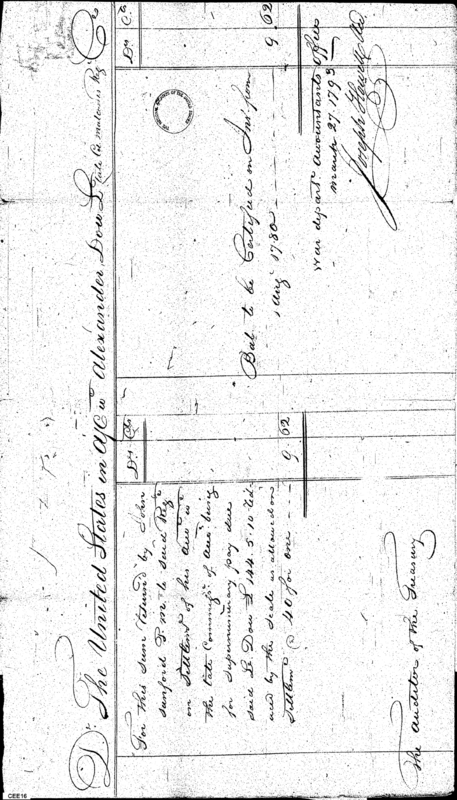 Dr. The United States in a/c wt. Alexander Dow Lt. late Ca. Malcoms Regt. Cr.
Drs. Cts.
For this sum return'd by John
Sanford P. M. to said Regt.
on Settlemt. of his Acct. wt.
the late Commissr. of Accts. being
for supernumerary pay due
said Lt. Dow £ 144.5.10
by the scale as allowed on
Settlemt. @ 40 for one - - - 9 62
The Auditor of the Treasury
Drs. Cts.
Bal. to be Certified on Int. from
1 Augt. 1780 - - - 9 62
War departt. Accountants Office
March 27. 1793
Joseph Howell
CEE16